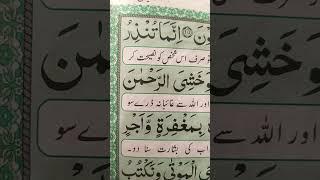 اِنَّمَا تُنْذِرُ
صرف اس شخص کو نصیحت کر
وَخَشِیَ الرَّحْمٰنَ
اور اللہ سے غائبانہ ڈرے سو
بِمَغْفِرَةٍ وَّاَجْرٍ
کی بشارت سنا دو۔
الْمَوْتٰى وَنَكْتُبُ